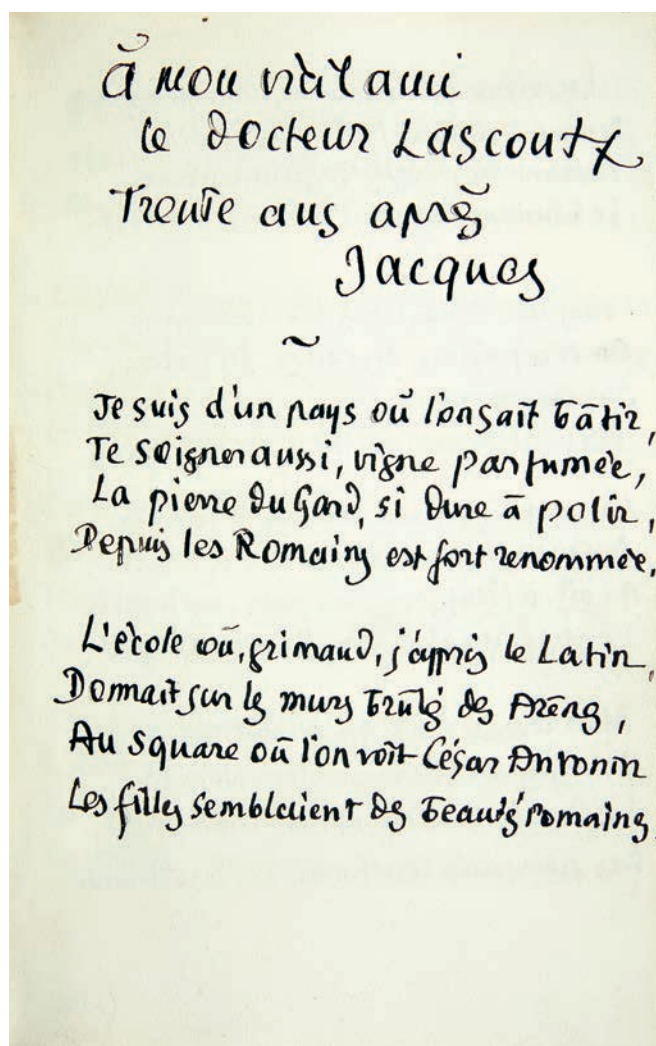 à mon vieil ami
le docteur Lascoutx
Trente ans après
Jacques
~
Je suis d'un pays où l'on sait bâtir,
Te soigner aussi, vigne parfumée,
La pierre du Gard, si dure à polir,
Depuis les Romains est fort renommée,
L'école où, grimaud, j'appris le Latin,
Donnait sur les murs brûlés des Arènes,
Au square où l'on voit César Antonin
Les filles semblaient des beautés romaines